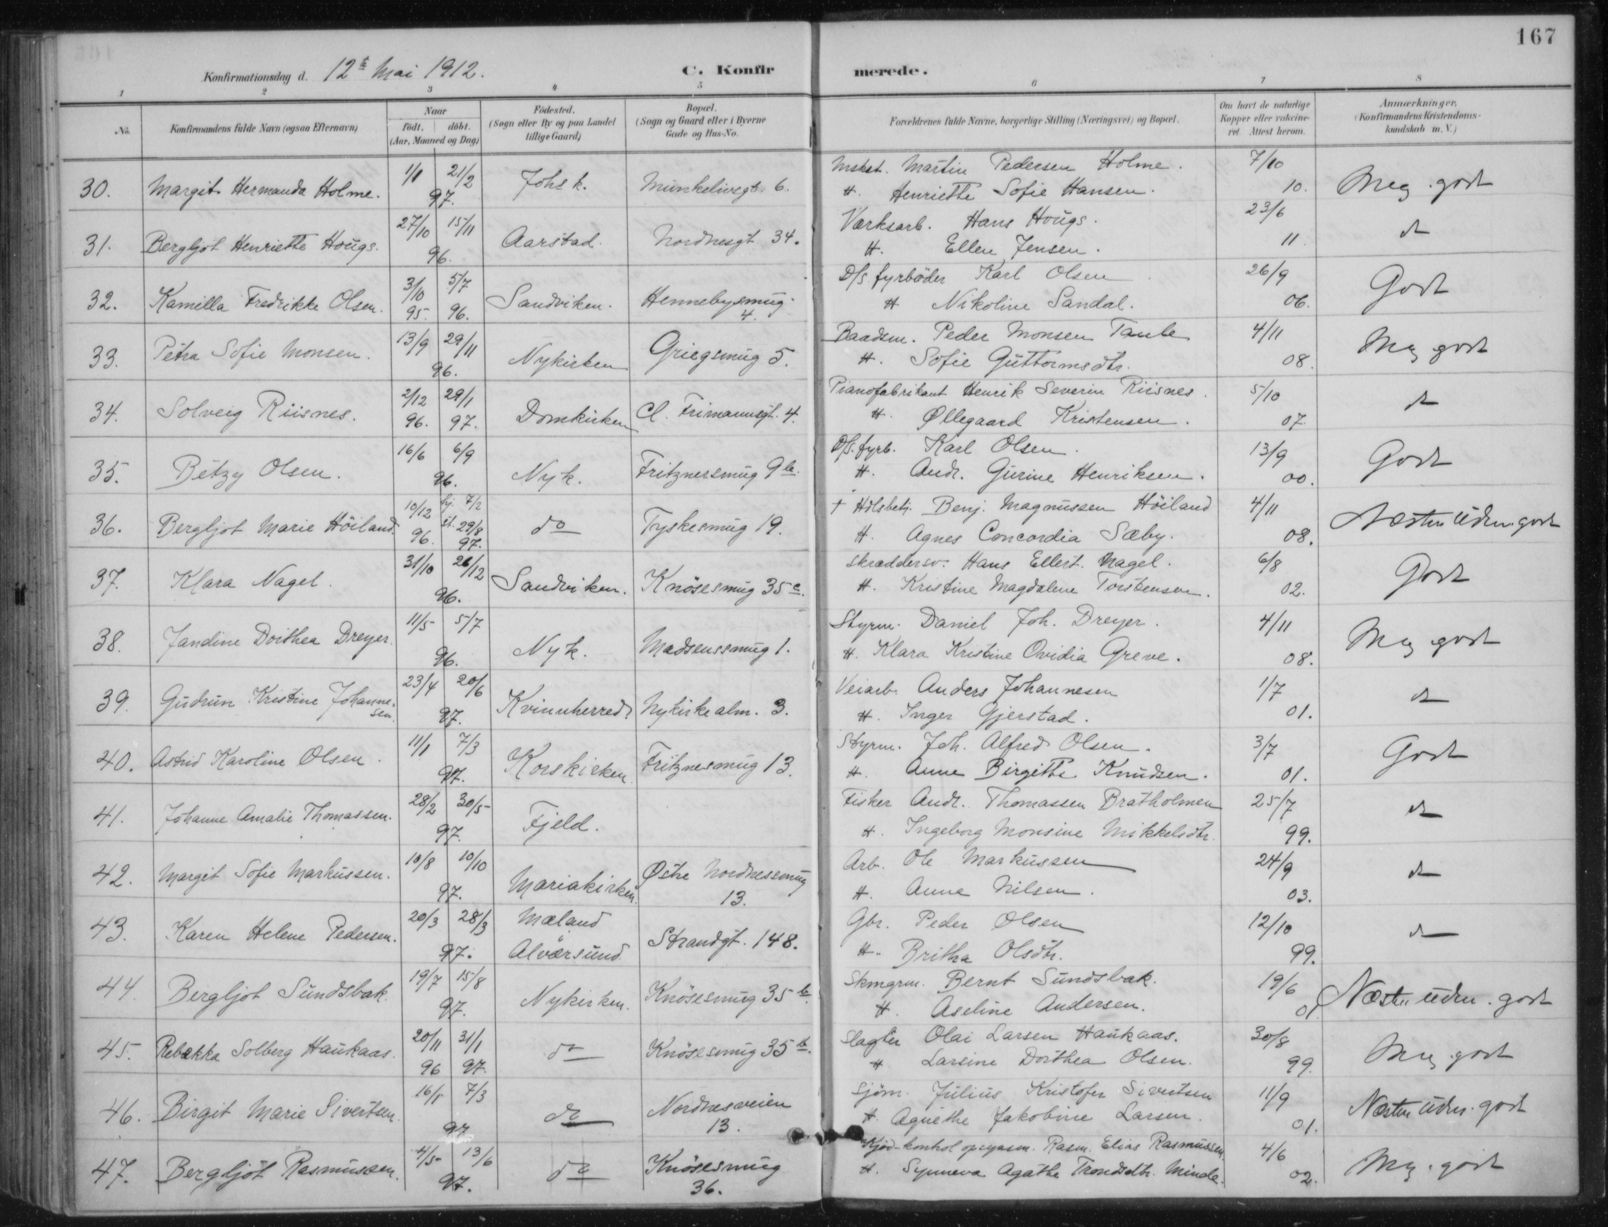 167
Konfirmationsdag d. 12te Mai 1912. C. Konfir merede.
1 2 3 4 5 6 7 8
No. Konfirmandens fulde Navn (ogsaa Efternavn) Naar født. døbt. (Aar, Maaned og Dag) Fødested. (Sogn eller By og paa Landet tillige Gaard) Bopæl. (Sogn og Gaard eller i Byerne Gade og Hus-No. Forældrenes fulde Navne, borgerlige Stilling (Næringsvei) og Bopæl. Om havt de naturlige Kopper eller vakcineret. Attest herom. Anmærkninger. (Konfirmandens Kristendomskundskab m. V.)
30. Margit Hermanda Holme. 1/1 21/2 97. Johs k. Munkelivsgt. 6. Mskst. Martin Pedersen Holme. 7/10 10. Meg. godt
H. Henriette Sofie Hansen.
31. Bergljot Henriette Hougs. 27/10 15/11 96. Aarstad. Nordnesgt. 34. Værksarb. Hans Hougs. 23/6 11. do
H. Ellen Jensen.
32. Kamilla Fredrikke Olsen. 3/10 95. 5/7 96. Sandviken. Hennebysmug. 4. D/s. fyrbøder Karl Olsen 26/9 06. Godt
H Nikoline Sandal.
33. Petra Sofie Monsen. 13/9 29/11 96. Nykirken Griegsmug 5. Baadsm. Peder Monsen Taule 4/11 08. Meg godt
H. Sofie Guttormsdtr.
34. Solveig Riisnes. 2/12 96. 29/1 97. Domkirken Cl. Frimannsgt. 4. Pianofabrikant Henrik Severin Riisnes. 5/10 07 do
H. Øllegaard Kristensen.
35. Betzy Olsen. 16/6 6/9 96. Nyk. Fritznersmug 9b. D/s. fyrb. Karl Olsen. 13/9 00. Godt
H. Andr. Gurine Henriksen.
36. Bergljot Marie Høiland. 10/12 96. hj. 7/2 st. 29/8 97. do Tyskesmug 19. † Hdlsbetj. Benj. Magnussen Høiland 4/11 08. Næsten uden. godt
H. Agnes Concordia Sæby.
37. Klara Nagel. 31/10 26/12 96. Sandviken. Knøsesmug 35c. Skræddersv. Hans Ellert Nagel. 6/8 02. Godt
H. Kristine Magdalene Torstensen.
38. Jandine Dorthea Dreyer. 11/5 5/7 96. Nyk. Madsenssmug 1. Styrm. Daniel Joh. Dreyer. 4/11 08. Meg godt
H. Klara Kristine Ovidia Greve.
39. Gudrun Kristine Johannesen. 23/4 20/6 97. Kvinnherred Nykirkealm. 3. Veiarb. Anders Johannesen 1/7 01. do
H. Inger Gjerstad.
40. Astrid Karoline Olsen. 11/1 7/3 97. Korskirken. Fritznersmug 13. Styrm. Joh. Alfred Olsen. 3/7 01. Godt
H. Anne Birgitte Knudsen.
41. Johanne Amalie Thomassen. 28/2 30/5 97. Fjeld. Fisker Andr. Thomassen Bratholmen 25/7 99. do
H. Ingeborg Monsine Mikkelsdtr.
42. Margit Sofie Markussen. 10/8 10/10 97. Mariakirken Østre Nordnessmug 13. Arb. Ole Markussen 24/9 03. do
H. Anne Nilsen.
43. Karen Helene Pedersen. 20/3 28/3 97. Mæland Alværsund Strandgt. 148. Gbr. Peder Olsen 12/10 99. do
H. Britha Olsdtr.
44. Bergljot Sundsbak. 19/7 15/8 97. Nykirken. Knøsesmug 35b. Skmgrm. Bernt Sundsbak. 19/6 01. Næsten uden. godt
H. Aseline Andersen.
45. Rebekka Solberg Haukaas. 20/11 96 31/1 97. do Knøsesmug 35b. Slagter Olai Larsen Haukaas. 30/8 99. Meg. godt
H Larsine Dorthea Olsen.
46. Birgit Marie Sivertsen. 16/1 7/3 97 do Nordnesveien 13. Sjøm. Julius Kristofer Sivertsen 11/9 01. Næsten uden. godt
H. Agnethe Jakobine Larsen.
47. Bergljot Rasmussen. 4/5 13/6 97. do Knøsesmug 36. Kjød-kontrol opsynsm. Rasm. Elias Rasmussen. 4/6 02. Meg. godt
H. Synneva Agathe Trondsdtr. Minde.